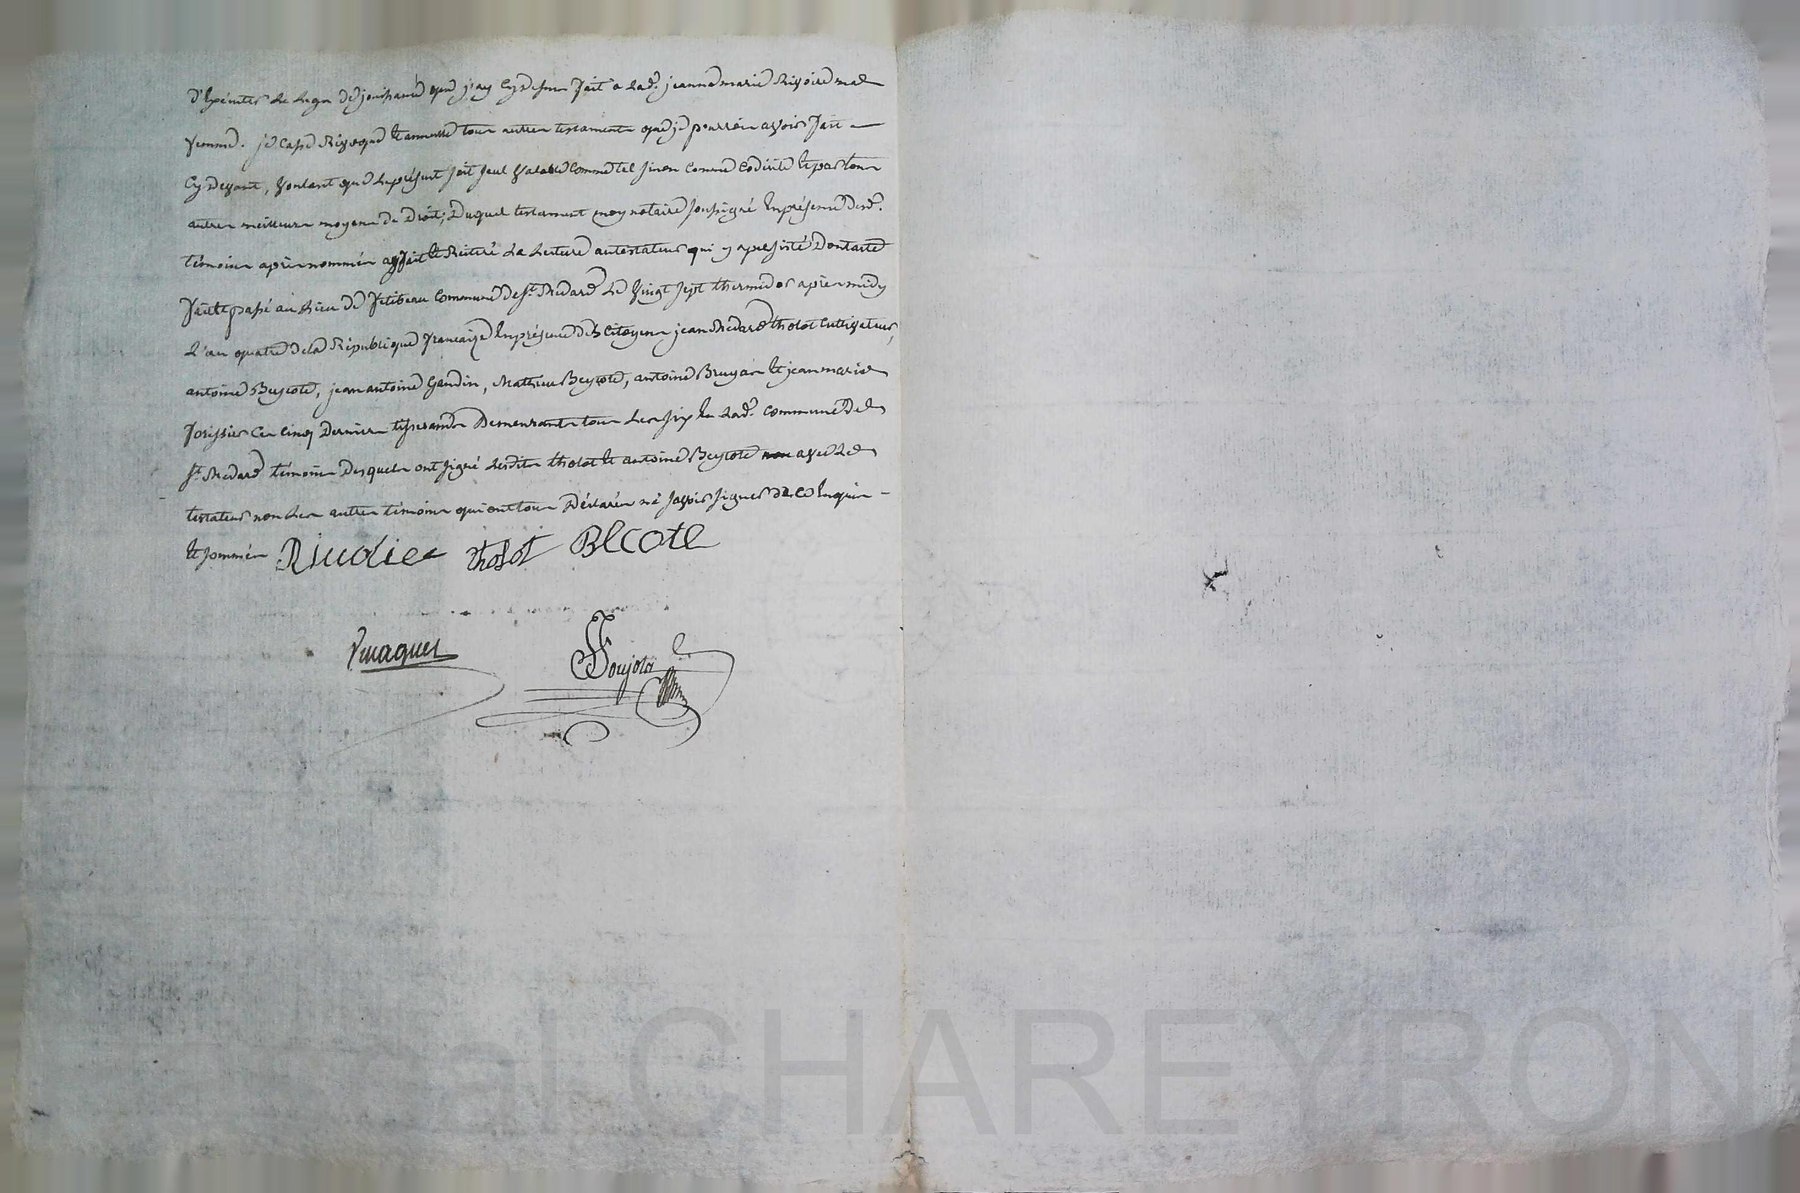 d'hériter le legs de jouissance que j'ay cy dessus fait a lad. jeanne marie Rivoire ma
femme. je casse Revoque et annulle tous autres testaments que je pourrois avoir fait
cy devant, voulant que le présent soit seul valable comme tel sinon comme codicile et par tous
autres meilleurs moyens de droit; duquel testament moy notaire soussigné en présence desd.
témoins après nommés ay fait et Réitéré la lecture au testateur qui y a persisté dont acte
fait et passé au lieu de commune de St Medard le vingt sept thermidor après midy
l'an quatre de la République française en présence des citoyens jean Medard tholot cultivateur,
antoine Beycote, jean antoine Gandin, Mathieu Beycote, antoine Bruyas et jean marie
ces cinq derniers tisserands demeurants tous les six en lad. commune de
St Medard témoins desquels ont signé lesdits tholot et antoine Beycote avec le
testateur non les autres témoins qui ont tous déclarés ne savoir signer de ce enquis
et sommés Riudier tholot BECOTE
Soujols
Pascal CHAREYRON